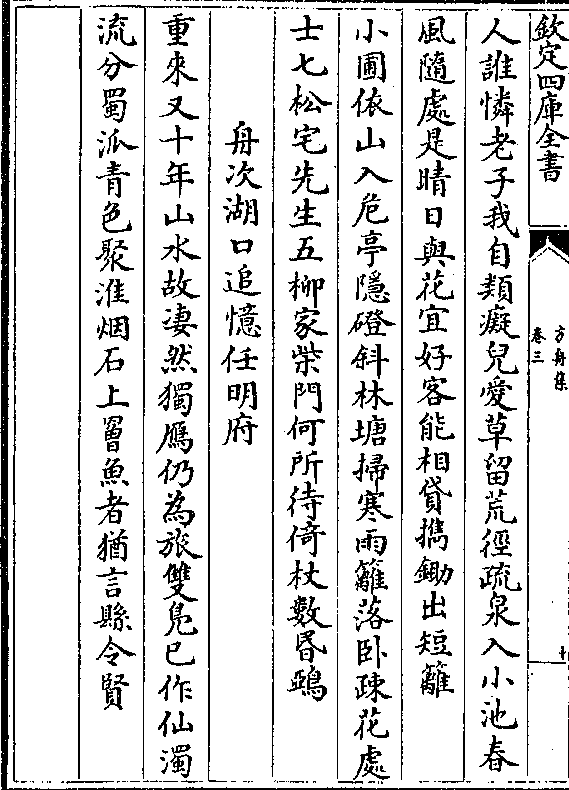 欽定四庫全書
方舟集
卷三
人誰憐老子我自類癡兒愛草留荒徑疏泉入小池春
風隨處是晴日與花宜好客能相貸攜鋤出短籬
小圃依山入危亭隱磴斜林塘掃寒雨籬落卧疎花處
士七松宅先生五柳家柴門何所待倚杖數昏鵶
舟次湖口追憶任明府
重來又十年山水故淒然獨鴈仍為旅雙鳧已作仙濁
流分蜀派青色聚淮烟石上罾魚者猶言縣令賢